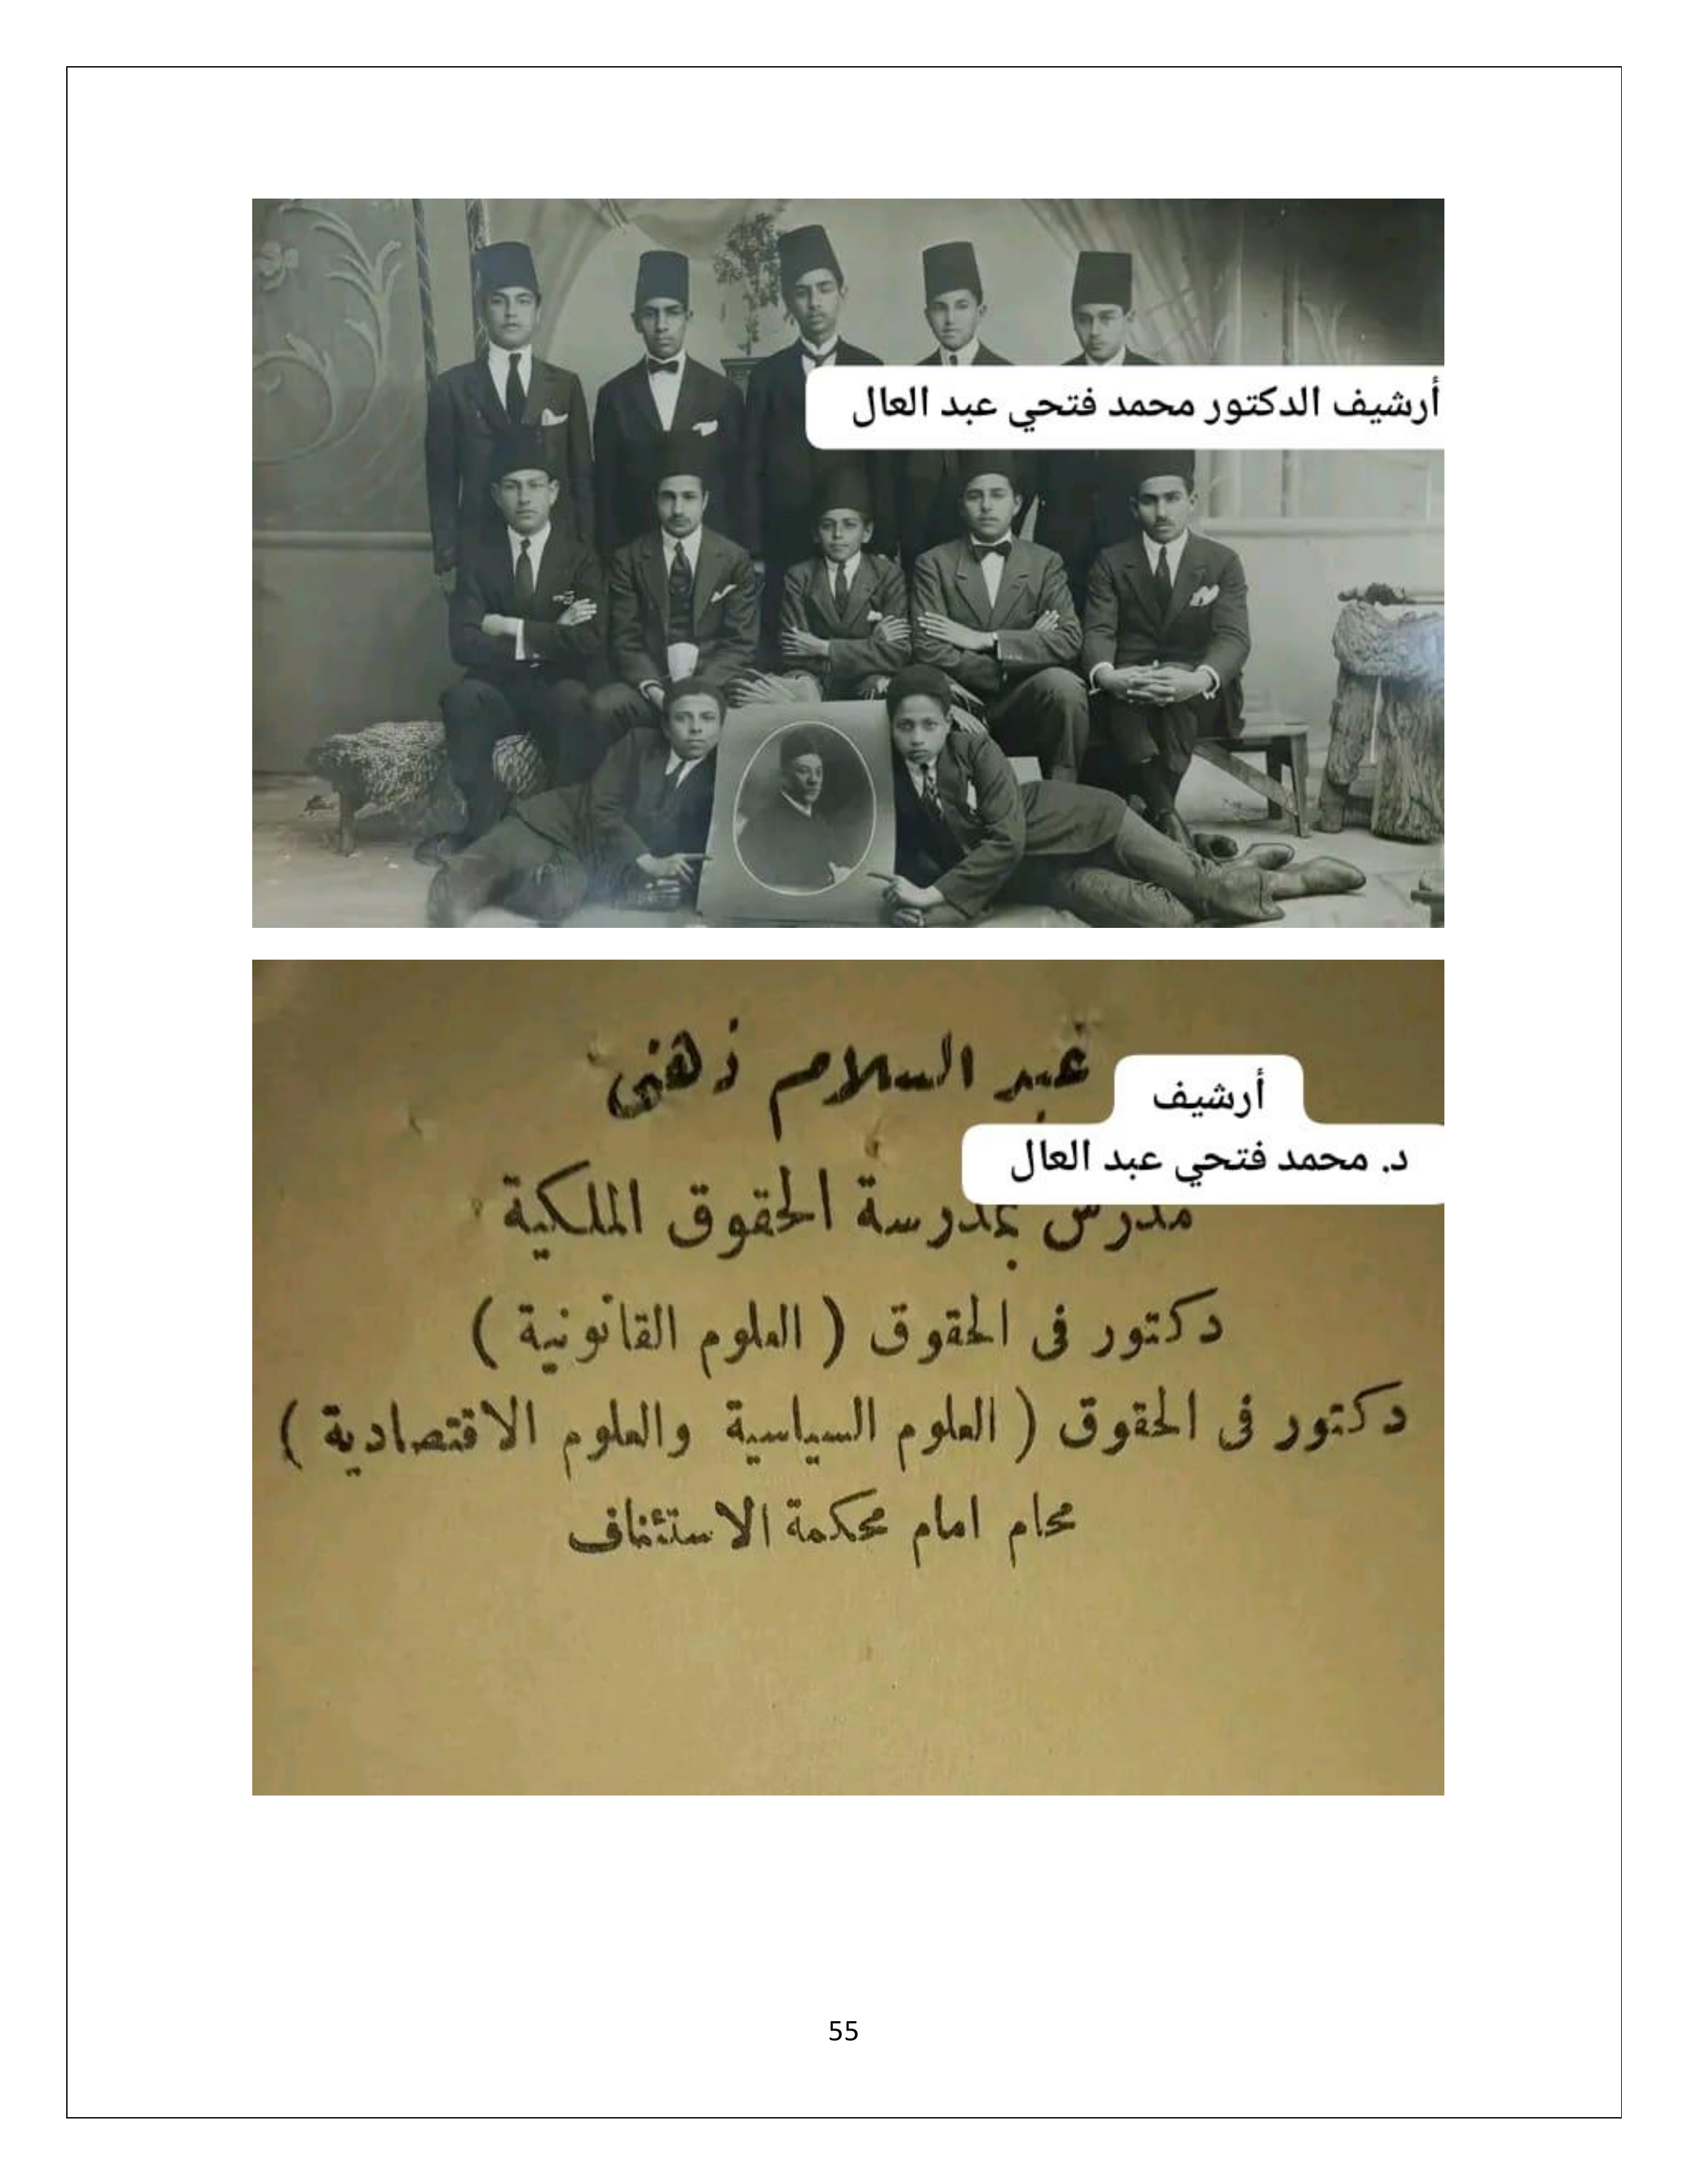 أرشيف الدكتور محمد فتحي عبد العال
عبد السلام ذهنى
أرشيف
د. محمد فتحي عبد العال
مدرس بمدرسة الحقوق الملكية
دكتور فى الحقوق ( العلوم القانونية )
دكتور فى الحقوق ( العلوم السياسية والعلوم الاقتصادية )
محام امام محكمة الاستئناف
55